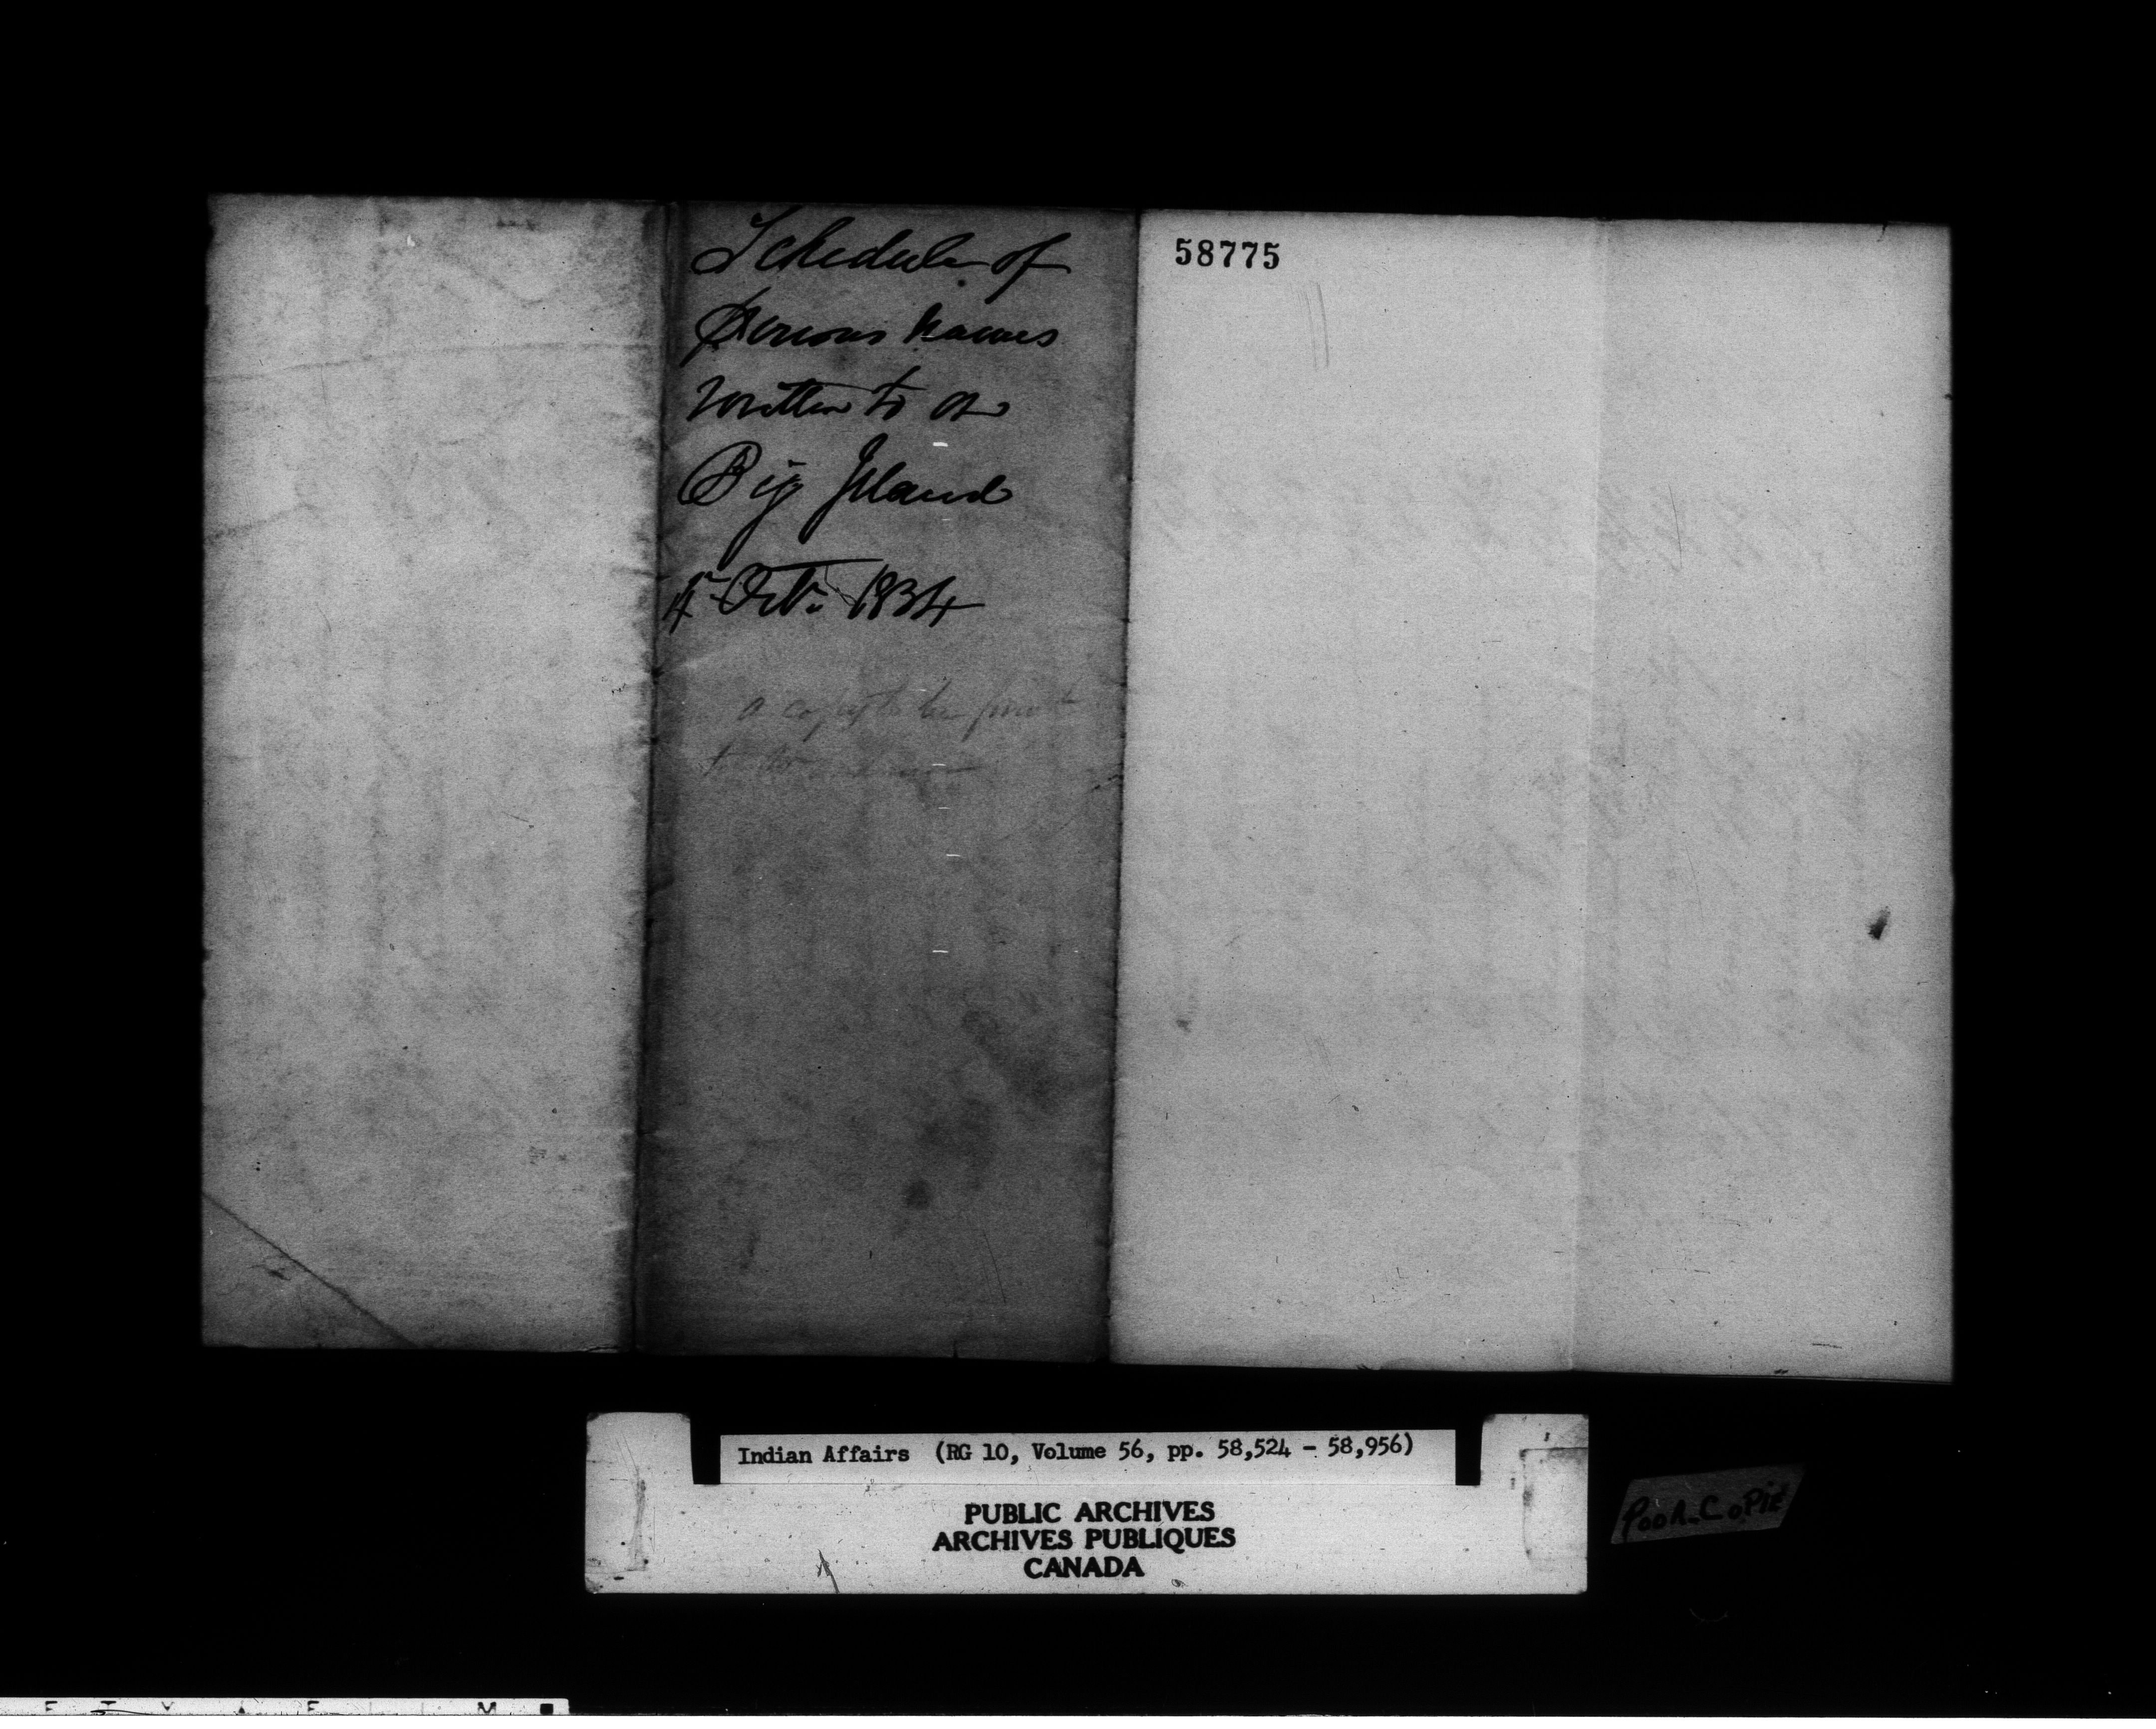 Schedule of
Persons names
written to on
Big Island
4 Oct. 1834
a copy to be
58775
Indian Affairs (RG 10, Volume 56, pp. 58,524 - 58,956)
PUBLIC ARCHIVES
ARCHIVES PUBLIQUES
CANADA
POOR_COPIE